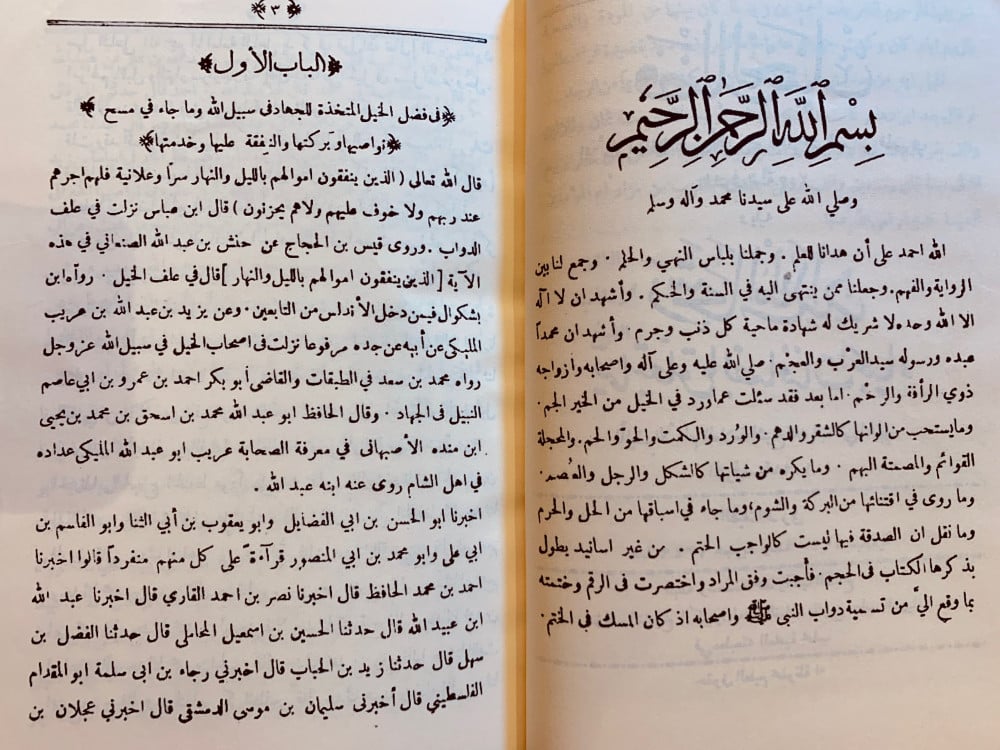 بِسْمِ اللهِ الرَّحْمٰنِ الرَّحِيْمِ
وصلي الله على سيدنا محمد وآله وسلم
الله احمد على أن هدانا للعلم . وجملنا بلباس النهي والحلم . وجمع لنا بين
الرواية والفهم. وجعلنا ممن ينتهى اليه في السنة والحكم . وأشهد ان لا اله
الا الله وحده لا شريك له شهادة ماحية كل ذنب وجرم . وأشهد ان محمداً
عبده ورسوله سيد العرب والعجم . صلي الله عليه وعلى آله واصحابه وأزواجه
ذوي الرأفة والرحم . اما بعد فقد سئلت عما ورد في الخيل من الخير الجم .
وما يستحب من الوانها كالشقر والدهم . والورد والكمت والحو والحم . والمحجلة
القوائم والمصمتة البهم . وما يكره من شياتها كالشكل والرجل
وما روى في اقتنائها من البركة والشوم، وما جاء في اسباقها من الحل والحرم
وما نقل ان الصدقة فيها ليست كالواجب الحتم . من غير اسانيد يطول
بذكرها الكتاب فى الحجم . فأجبت وفق المراد واختصرت فى الرقم وختمته
بما وقع اليَّ من تسمية دواب النبي ﷺ واصحابه اذ كان المسك فى الختم .
﴿ ٣ ﴾
﴿الباب الأول﴾
﴿فى فضل الخيل المتخذة للجهاد فى سبيل الله وما جاء في مسح﴾
﴿نواصيها وبركتها والنفقة عليها وخدمتها﴾
قال الله تعالى ( الذين ينفقون اموالهم بالليل والنهار سراً وعلانية فلهم اجرهم
عند ربهم ولا خوف عليهم ولا هم يحزنون ) قال ابن عباس نزلت في علف
الدواب . وروى قيس بن الحجاج عن حنش بن عبد الله الصنعاني في هذه
الآية [ الذين ينفقون اموالهم بالليل والنهار ] قال في علف الخيل . رواه ابن
بشكوال فيمن دخل الأندلس من التابعين . وعن يزيد بن عبد الله بن عريب
المليكى عن أبيه عن جده مرفوعا نزلت فى اصحاب الخيل في سبيل الله عز وجل
رواه محمد بن سعد في الطبقات والقاضى أبو بكر احمد بن عمرو بن ابي عاصم
النبيل فى الجهاد . وقال الحافظ ابو عبد الله محمد بن اسحق بن محمد بن يحيى
ابن منده الأصبهانى في معرفة الصحابة عريب ابو عبد الله المليكى عداده
في اهل الشام روى عنه ابنه عبد الله .
اخبرنا ابو الحسن بن ابي الفضايل وابو يعقوب بن أبي الثنا وابو القاسم بن
ابي على وابو محمد بن ابي المنصور قرآءة على كل منهم منفرداً قالوا اخبرنا
احمد بن محمد الحافظ قال اخبرنا نصر بن احمد القاري قال اخبرنا عبد الله
ابن عبيد الله قال حدثنا الحسين بن اسمعيل المحاملى قال حدثنا الفضل بن
سهل قال حدثنا زيد بن الحباب قال اخبرني رجاء بن ابى سلمة ابو المقدام
الفلسطيني قال أخبرنى سليمان بن موسى الدمشقى قال اخبرني عجلان بن